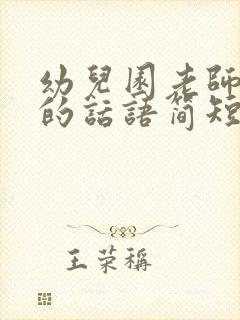 幼兒園老師
的話語簡短
王荣稱